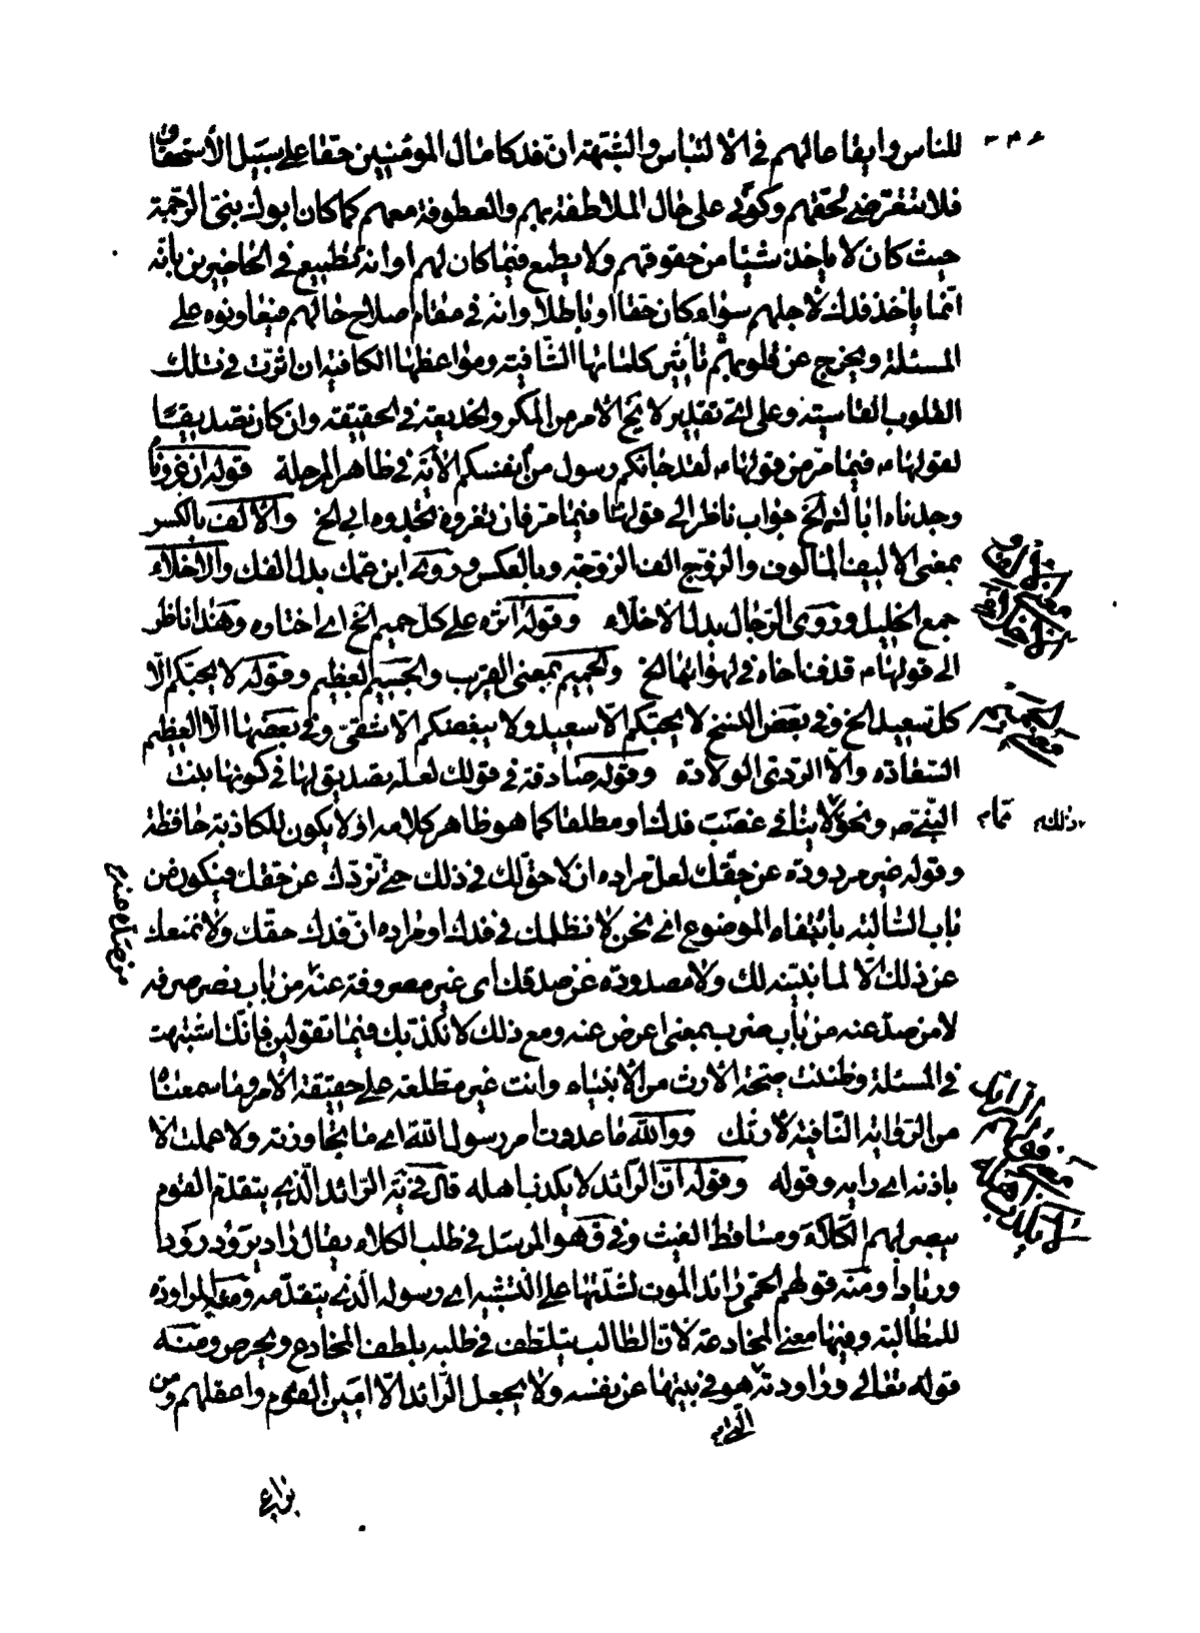 للناس وايقاعا لهم فى الالتباس والشبهة ان فدكا مال المؤمنين حقا على سبيل الاستحقاق
فلا تتعرضى لحقهم وكونى على حال الملاطفة بهم والعطوفة معهم كما كان ابوك نبى الرحمة
حيث كان لا ياخذ شيئا من حقوقهم ولا يطمع فيما كان لهم او انه تطميع فى الحاضرين بانه
انما ياخذ فدك لاجلهم سواء كان حقا او باطلا وانه فى مقام صلاح حالهم فيعاونوه على
المسئلة ويخرج عن قلوبهم تأثير كلماتها الشافية ومواعظها الكافية ان اثرت فى تلك
القلوب القاسية وعلى اى تقدير لا يخ الامر من المكر والخديعة فى الحقيقة وان كان تصديقا
لقولها ع فيما مر من قولها ع لقد جائكم رسول من أنفسكم الآية فى ظاهر المرحلة قوله ان عزوناه
وجدناه اباك الخ جواب ناظر الى قولها فيما مر فان تعزوه تجدوه ابى الخ والالف بالكسر
بمعنى الاليف المألوف والزوج الف الزوجة وبالعكس وروى ابن عمك بدل الفك والاخلاء
جمع الخليل وروى الرجال بدل الاخلاء وقوله اثره على كل حميم الخ اى اختاره وهذا ناظر
الى قولها ع قذف اخاه فى لهواتها الخ والحميم بمعنى القريب والجسيم العظيم وقوله لا يحبكم الا
كل سعيد الخ وفى بعض النسخ لا يحبكم الا سعيد ولا يبغضكم الا شقى وفى بعضها الا العظيم
السعادة والا الردى الولادة وقوله صادقة فى قولك لعله تصديق لها فى كونها بنت
النبى ص ونحوه لا ينافى غصب فدك او مطلقا كما هو ظاهر كلامه اذ لا يكون للكاذبة حافظة
وقوله غير مردودة عن حقك لعل مراده ان لا حق لك فى ذلك حتى نردك عن حقك فيكون من
باب السالبة بانتفاء الموضوع اى نحن لا نظلمك فى فدك او مراده ان فدك حقك ولا نمنعك
عن ذلك الا لما نبينه لك ولا مصدودة عن صدقك اى غير مصروفة عنه من باب نصر صرفه
لا من صد عنه من باب ضرب بمعنى اعرض عنه ومع ذلك لا نكذبك فيما تقولين فانك اشتبهت
فى المسئلة وظننت صحة الارث من الانبياء وانت غير مطلعة على حقيقة الامر وما سمعت
من الرواية النافية لارثك ووالله ما عدوت من رسول الله اى ما تجاوزته ولا عملت الا
باذنه اى رأيه وقوله وقوله ان الرائد لا يكذب اهله قال فى ية الرائد الذى يتقدم القوم
يبصر لهم الكلاء ومساقط الغيث وفى ق هو المرسل فى طلب الكلاء يقال راد يرود رودا
وريادا ومنه قولهم الحمى رائد الموت لشدتها على التشبيه اى رسوله الذى يتقدمه ومنه المراودة
للمطالبة وفيها معنى المخادعة لان الطالب يتلطف فى طلبه بلطف المخادع ويحرص ومنه
قوله تعالى وراودته هو فى بيتها عن نفسه ولا يجعل الرائد الا امين القوم واعقلهم ومن
التى
تمام